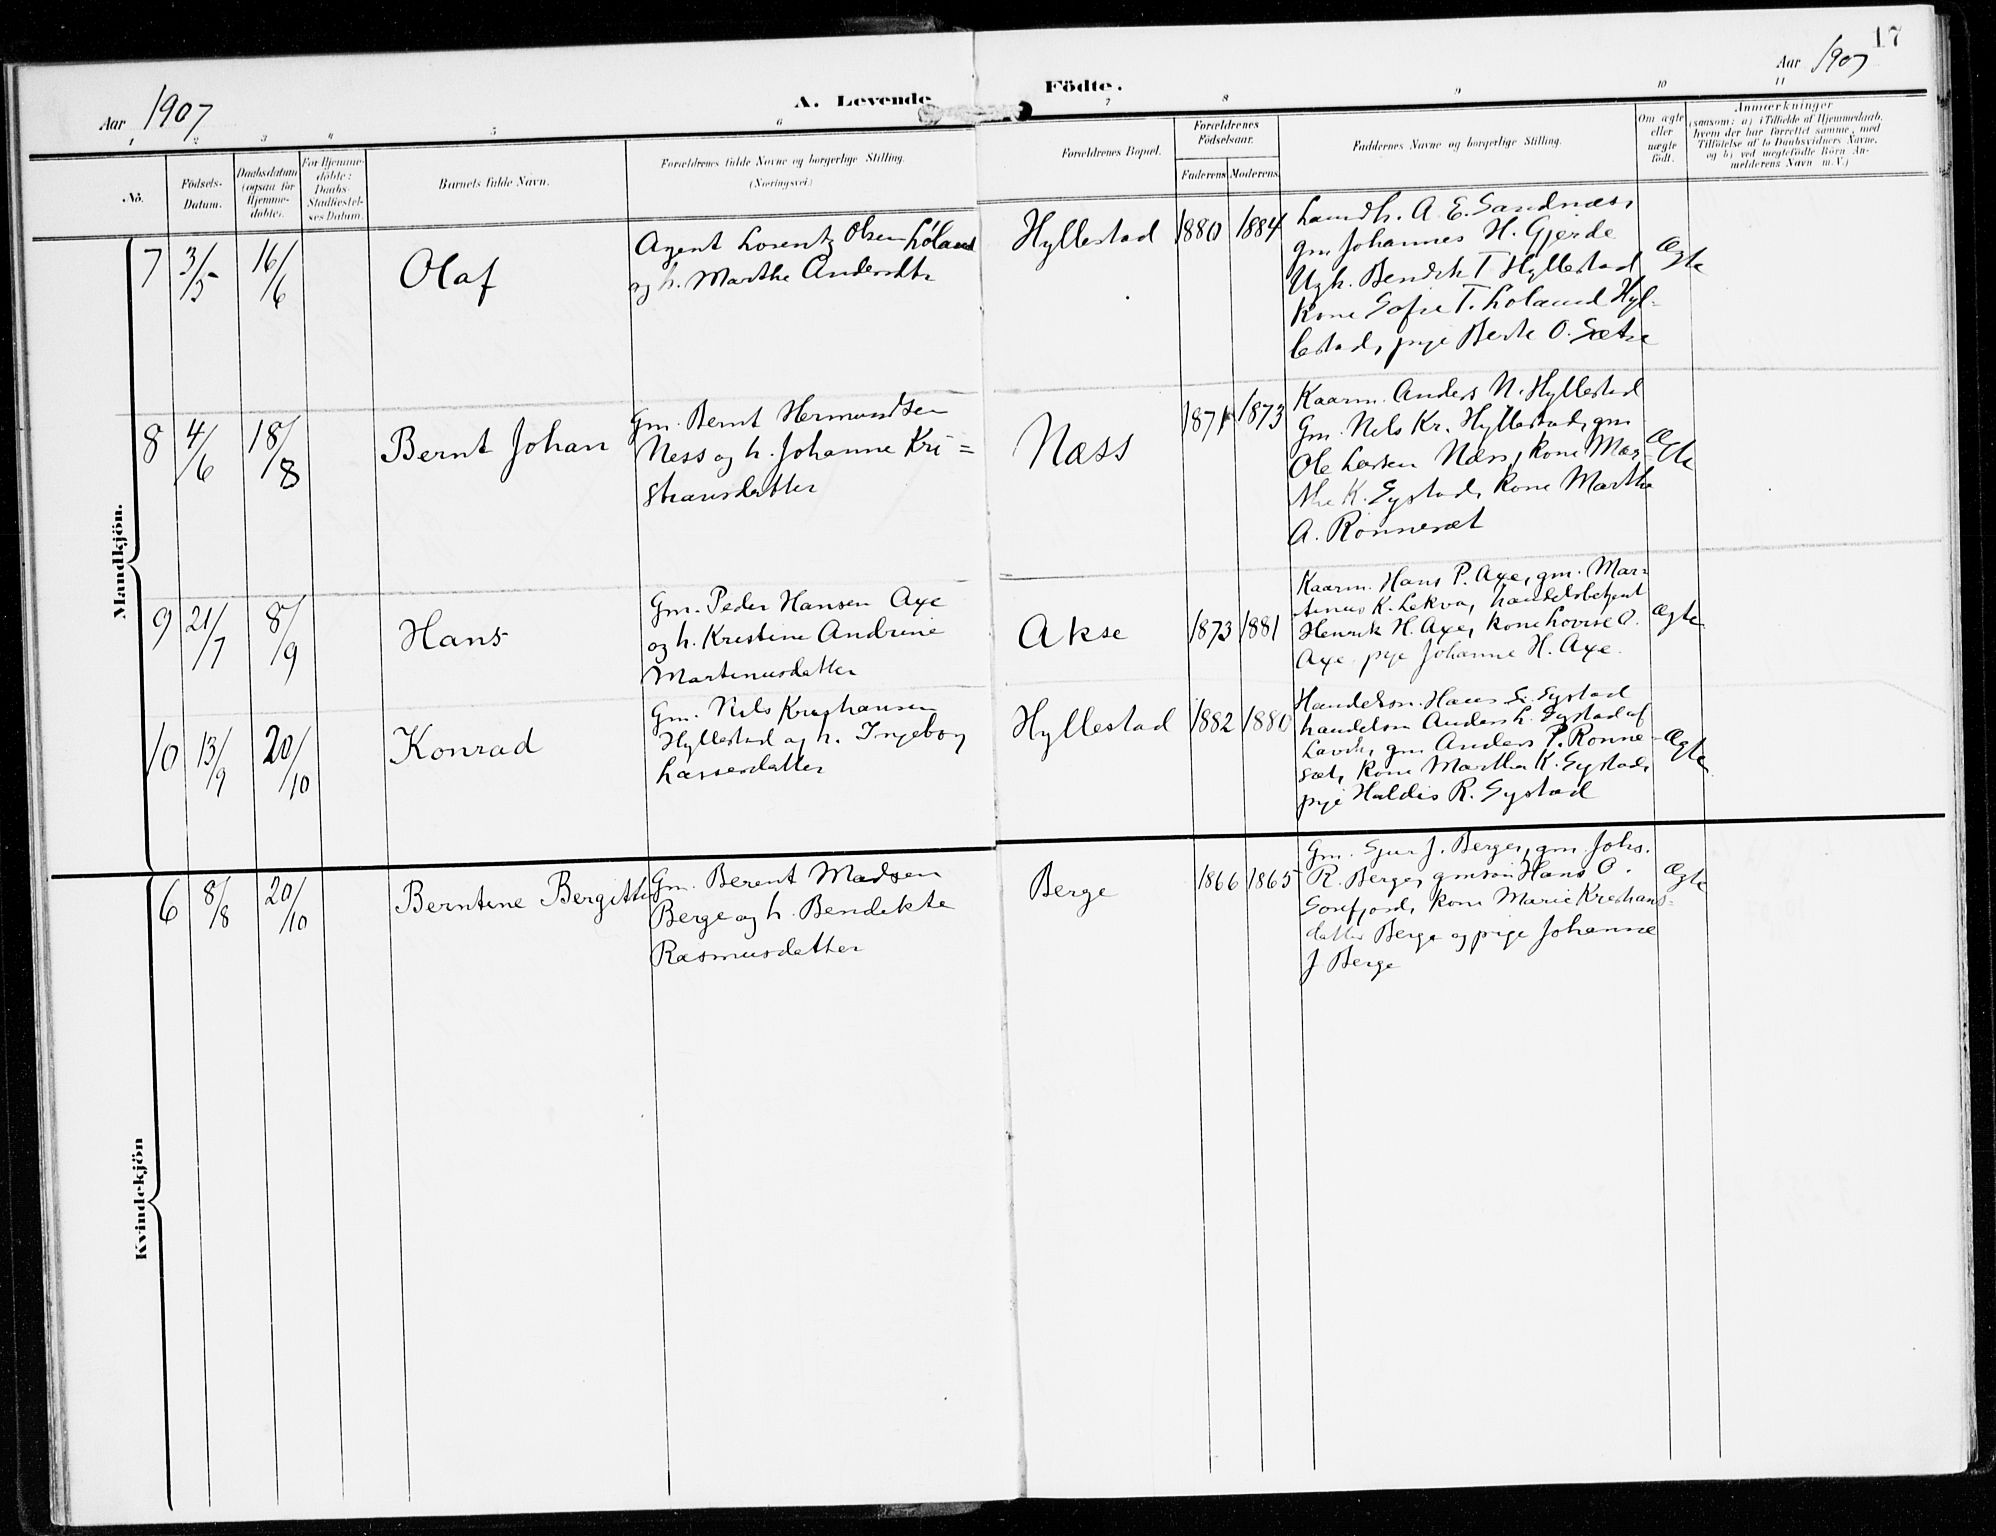 17
Aar 1907
A. Levende Födte.
Aar 1907
1 2 3 4 5 6 7 8 9 10 11
No.
Födsels-
Datum.
Daabsdatum
(ogsaa for
Hjemme-
döbte).
For Hjemme-
döbte:
Daabs-
Stadfæstel-
ses Datum.
Barnets fulde Navn.
Forældrenes fulde Navne og borgerlige Stilling.
(Næringsvei)
Forældrenes Bopæl.
Forældrenes
Födselsaar.
Faderens Moderens
Faddernes Navne og borgerlige Stilling.
Om ægte
eller
uægte
født.
Anmærkninger
(saasom: a) i Tilfælde af Hjemmedaab,
hvem der har forrettet samme, med
Tilføielse af to Daabsvidners Navne,
og b) ved uægtefödte Börn An-
melderens Navn m. V.)
Mandkjön.
7 3/5 16/6 Olaf
Agent Lorentz Olsen Löland
og h. Marthe Andersdtr
Hyllestad 1880 1884
Landh. A. E. Sandnæs,
gm Johannes H. Gjerde
Ugk. Bendik T Hyllestad
Kone Sofie T. Loland Hyl-
lestad, pige Berte O. Sætre
Ægte
8 4/6 18/8 Bernt Johan
Gm. Bernt Hermundsen
Ness og h. Johanne Kri=
stiansdatter
Næss 1871 1873
Kaarm. Anders N. Hyllestad
Gm. Nils Kr. Hyllestad, gm
Ole Larsen Næss, kone Mar-
the K. Eystad, kone Marthe
A. Rønneset
Ægte
9 21/7 8/9 Hans
Gm. Peder Hansen Axe
og h. Kristine Andrine
Martinusdatter
Akse 1873 1881
Kaarm. Hans P. Axe, gm. Mar=
tinus K. Lekva, handelsbetjent
Henrik H. Axe, kone Lovise O.
Axe, pige Johanne H. Axe.
Ægte
10 13/9 20/10 Konrad
Gm. Nils Kristiansen
Hyllestad og h. Ingeborg
Lassesdatter
Hyllestad 1882 1880
Handelsm. Hans L. Eystad
handelsm Anders L. Eystad af
Lavik, gm Anders P. Rønne-
set, kone Martha K. Eystad,
pige Haldis R. Eystad
Ægte
Kvindekjön
6 8/8 20/10 Berntine Bergitte
Gm. Berent Madsen
Berge og h. Bendikte
Rasmusdatter
Berge 1866 1865
Gm. Sjur J. Berge, gm. Johs.
R. Berge, gmsøn Hans O.
Sørefjord, kone Marie Kristians=
datter Berge og pige Johanne
J Berge
Ægte